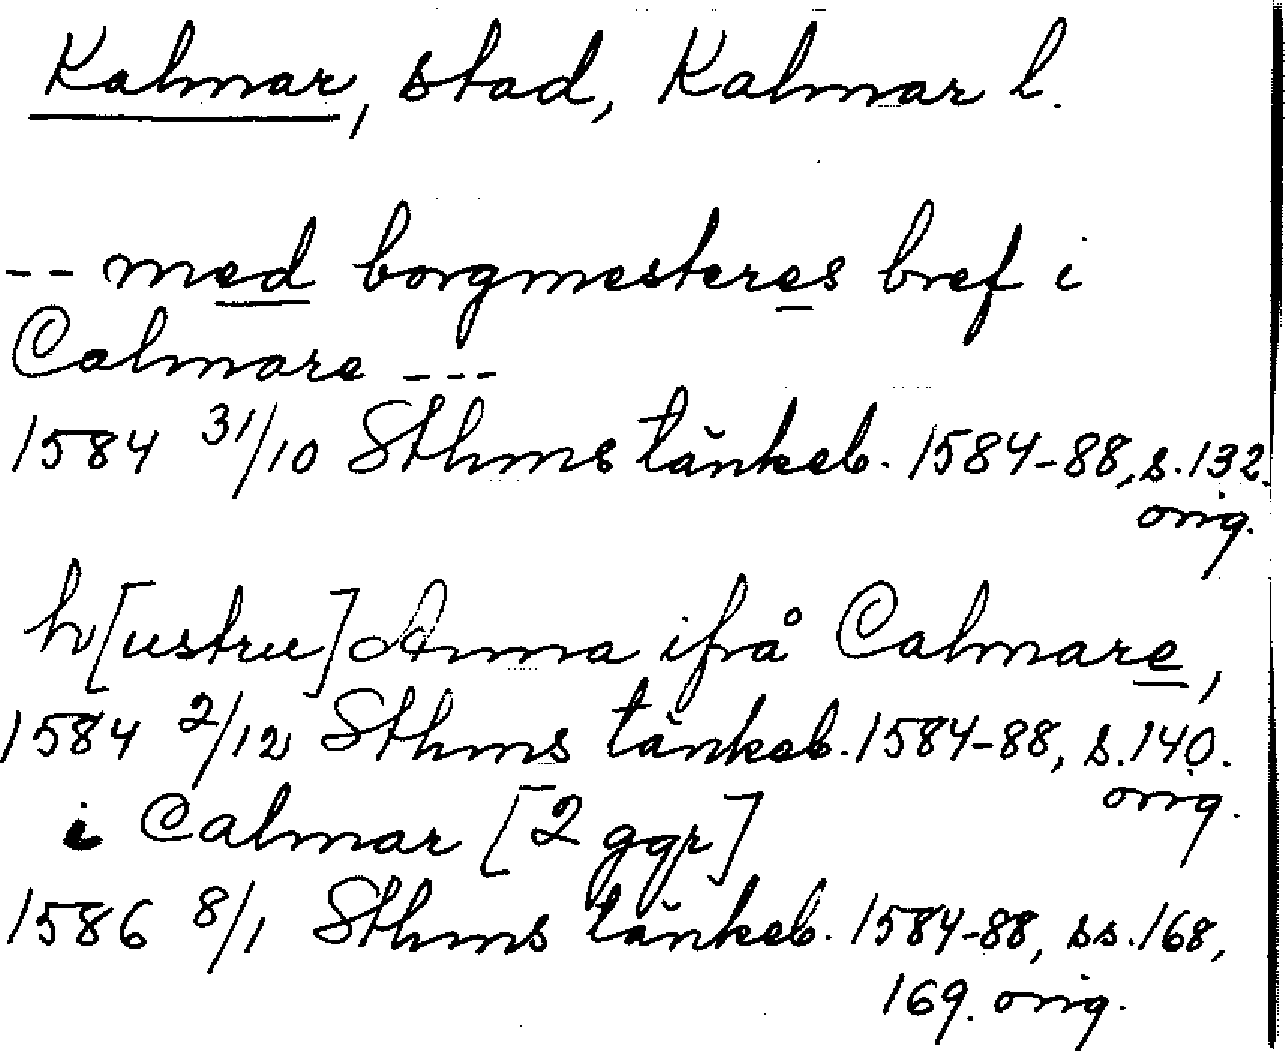 Kalmar, stad, Kalmar l.
-- med borgmesteres bref i
Calmare ---
1584 31/10 Sthms tänkeb. 1584-88, s. 132.
orig.
h[ustru] Anna ifrå Calmare,
1584 2/12 Sthms tänkeb. 1584-88, s. 140.
orig.
i Calmar [2 ggr]
1586 8/1 Sthms tänkeb. 1584-88, ss. 168,
169. orig.